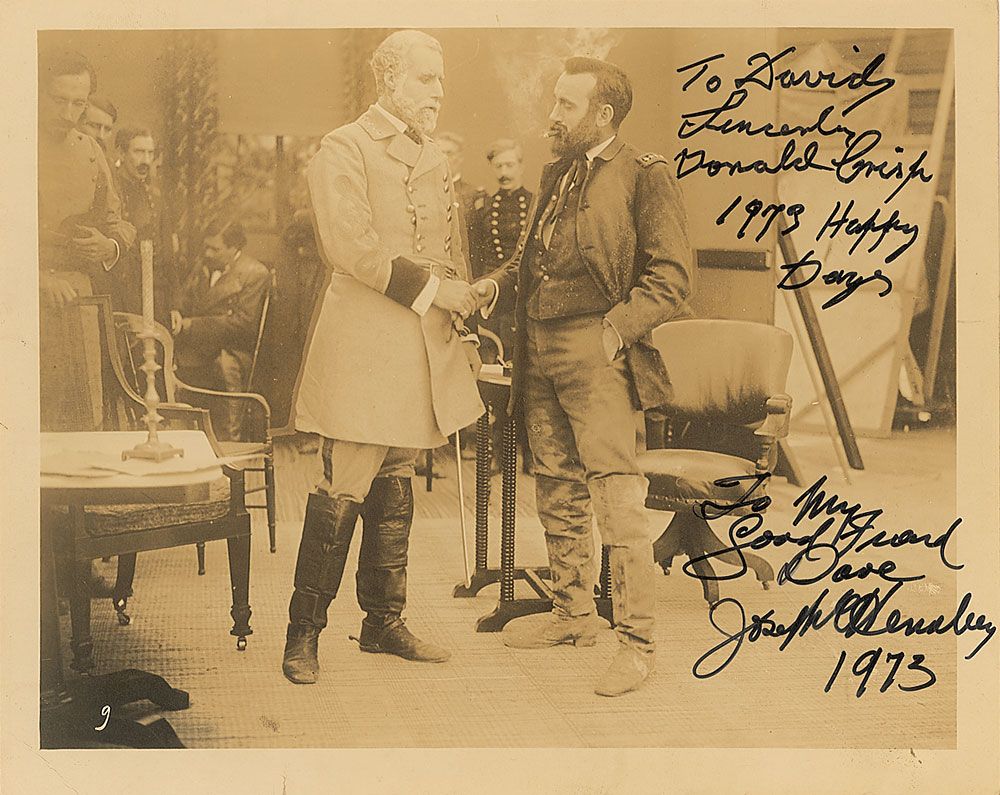 To David
Sincerely
Donald Crisp
1973 Happy
Days
To My
Good Friend
Dave
Joseph Henabery
1973
9